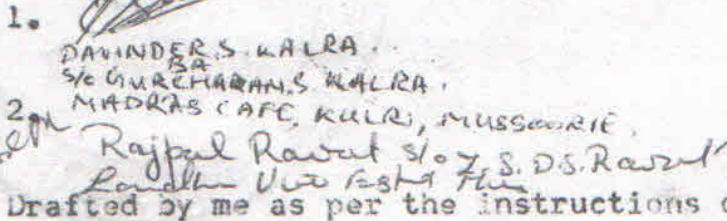 1.
DAVINDER S. KALRA.
BA
S/o GURCHARAN S KALRA.
MADRAS CAFE, KULRI, MUSSOORIE.
2.
Rajpal Rawat S/o S. D.S. Rawat
Drafted by me as per the instructions